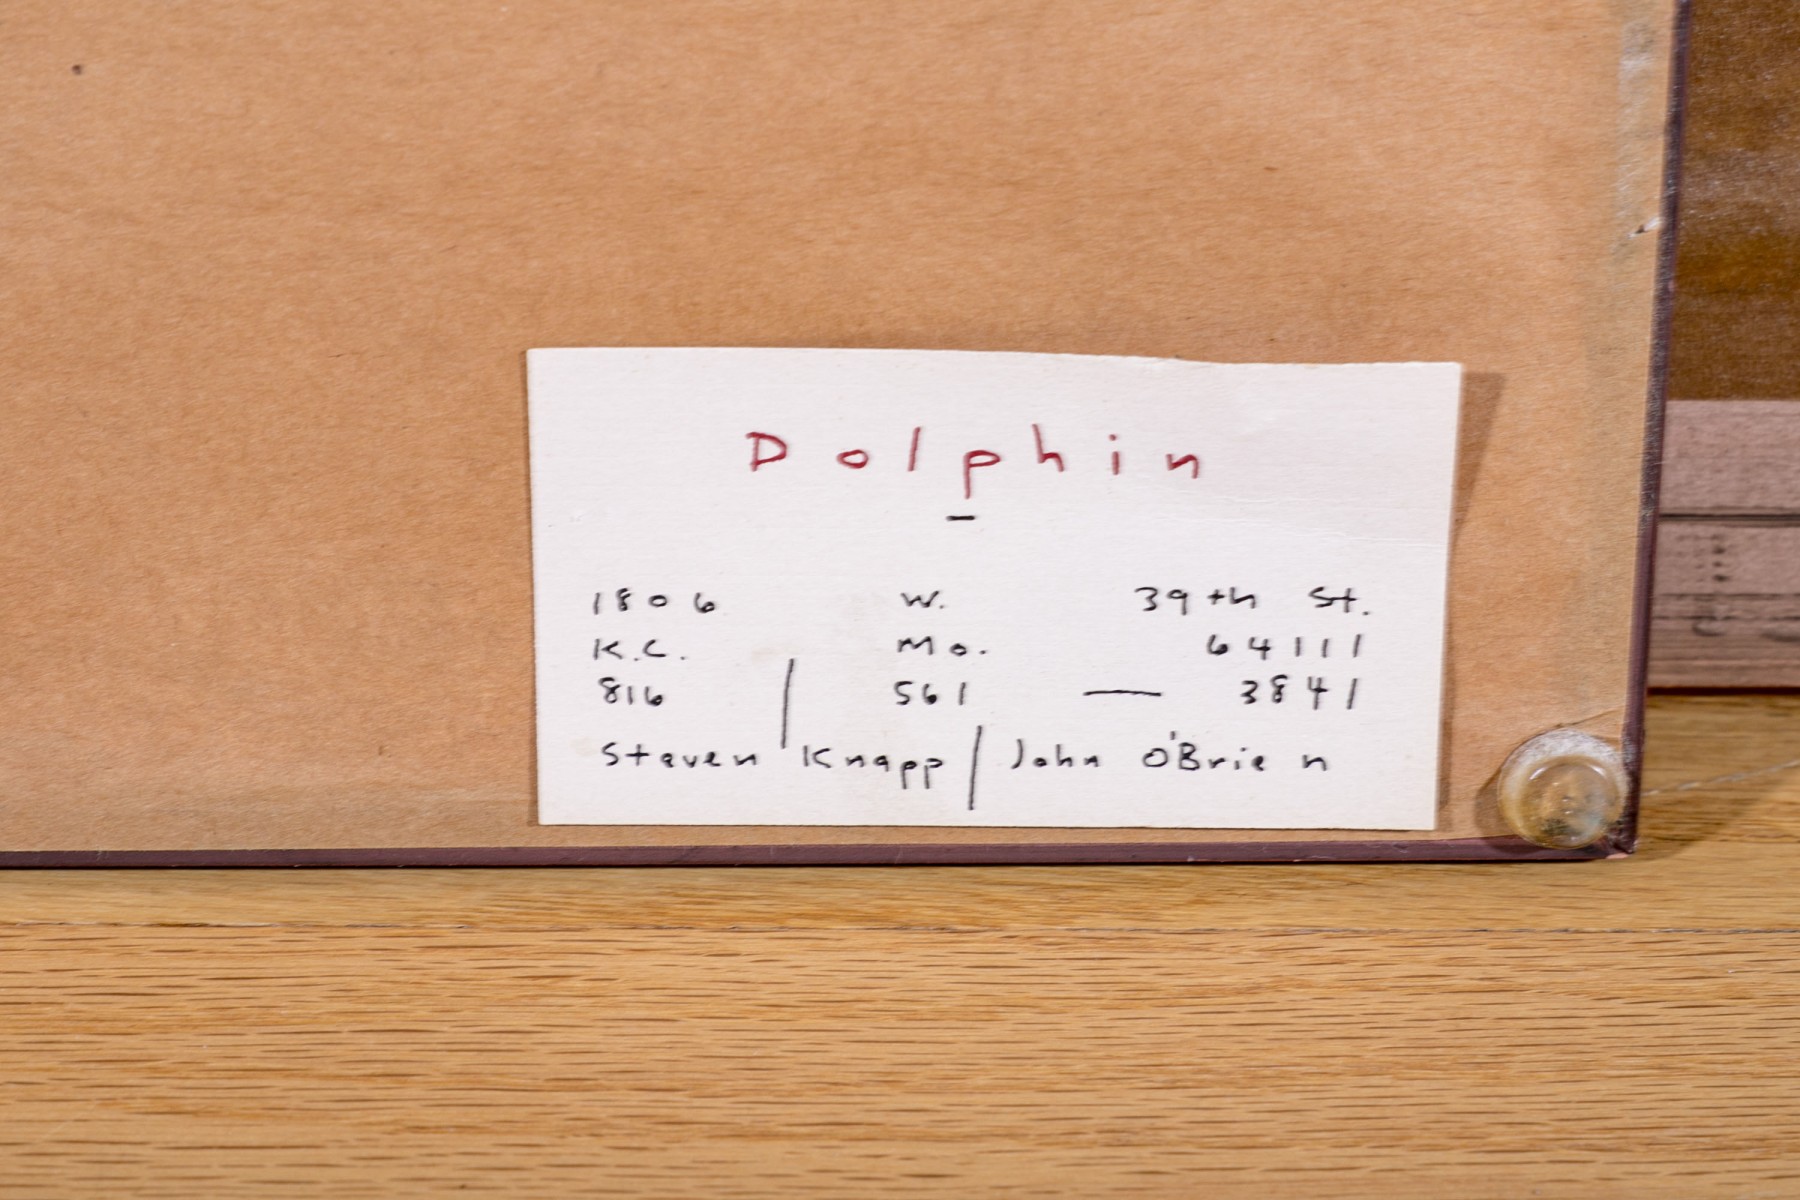 Dolphin
1806 W. 39th St.
K.C. Mo. 64111
816 / 561 — 3841
Steven Knapp / John O'Brien